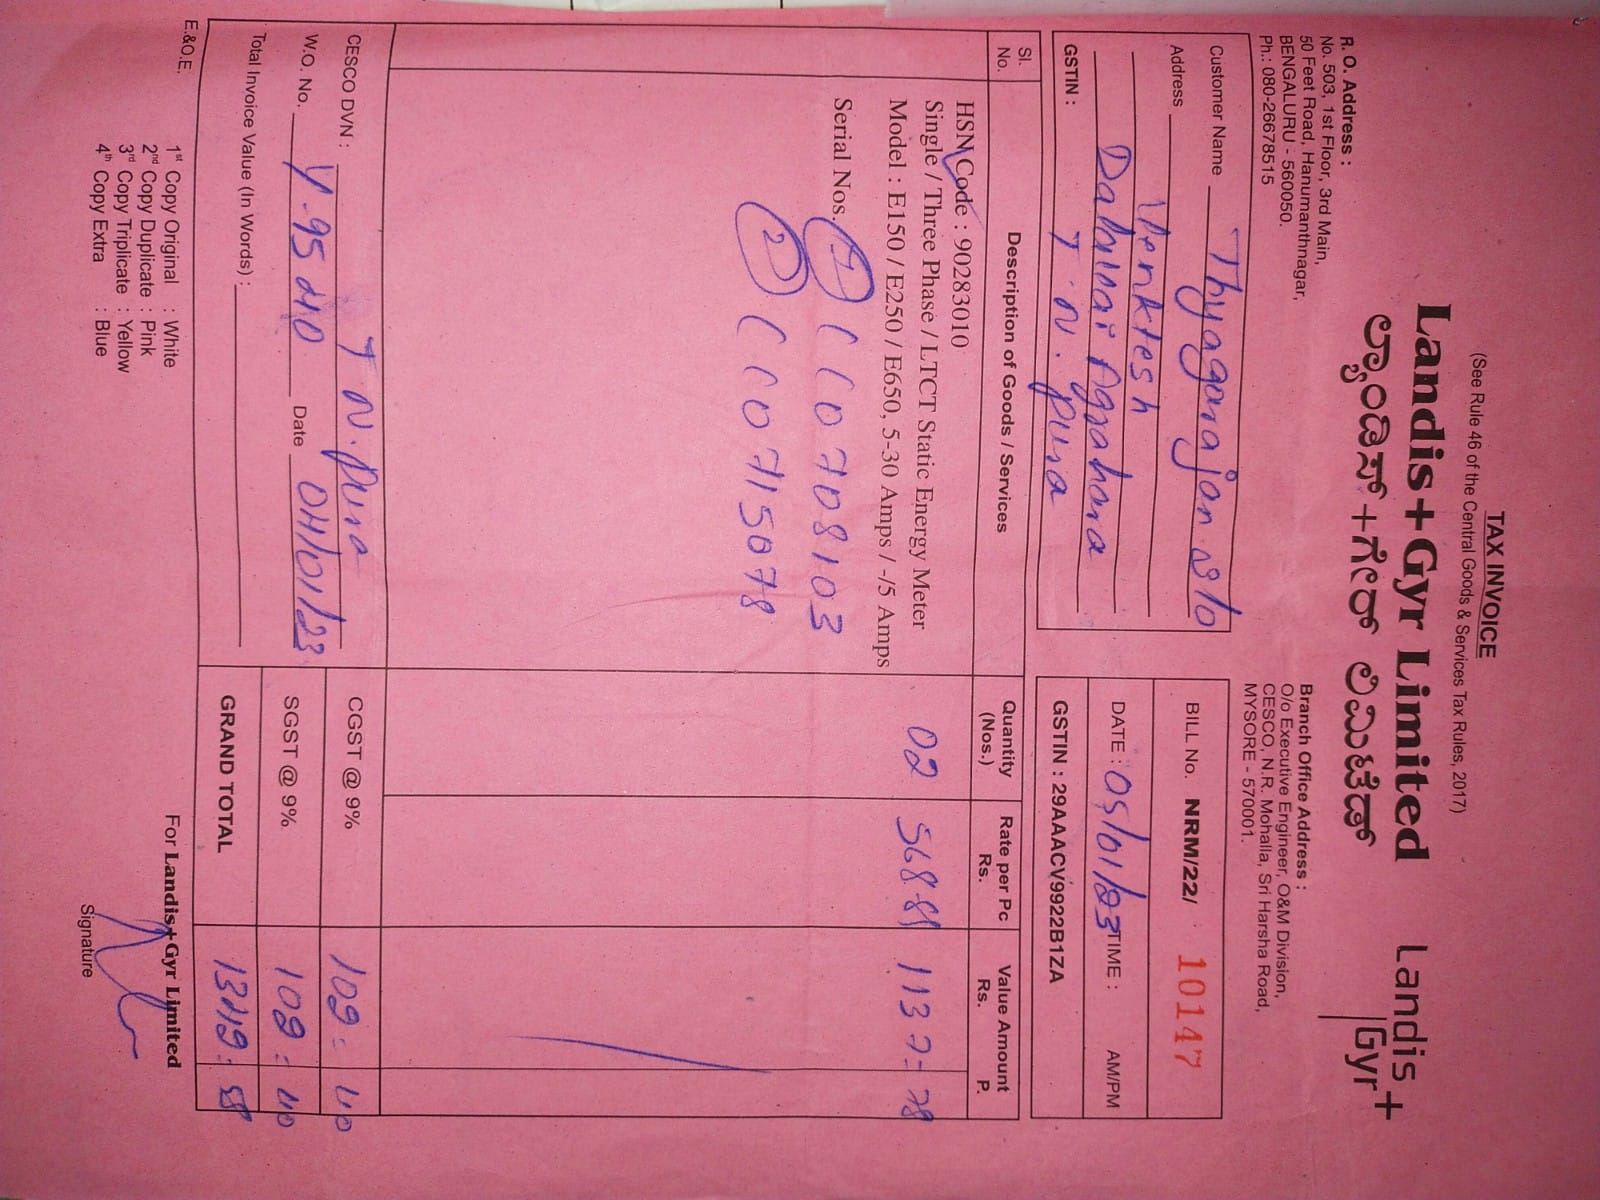 TAX INVOICE
(See Rule 46 of the Central Goods & Services Tax Rules, 2017)
Landis+Gyr Limited
ಲ್ಯಾಂಡಿಸ್+ಗೇರ್ ಲಿಮಿಟೆಡ್
Landis+
Gyr+
R. O. Address :
No. 503, 1st Floor, 3rd Main,
50 Feet Road, Hanumanthnagar,
BENGALURU - 560050.
Ph.: 080-26678515
Branch Office Address :
O/o Executive Engineer, O&M Division,
CESCO, N.R. Mohalla, Sri Harsha Road,
MYSORE - 570001.
Customer Name Thyagarajan S/o
Address Venktesh
Dalavai Agrahara
GSTIN : T. N. Pura
BILL No. NRM/22/ 10147
DATE : 05/01/23 TIME : AM/PM
GSTIN : 29AAACV9922B1ZA
Sl. No. Description of Goods / Services Quantity (Nos.) Rate per Pc Rs. Value Amount Rs. P.
HSN Code : 90283010
Single / Three Phase / LTCT Static Energy Meter
Model : E150 / E250 / E650, 5-30 Amps / -/5 Amps 02 568-89 1137=78
Serial Nos. 1 ( ( 0708103
2 ( ( 0715078
CESCO DVN : T N. Pura
W.O. No. Date 04/01/23
Total Invoice Value (In Words) :
CGST @ 9% 102=40
SGST @ 9% 102=40
GRAND TOTAL 1342=58
E.&O.E.
1st Copy Original : White
2nd Copy Duplicate : Pink
3rd Copy Triplicate : Yellow
4th Copy Extra : Blue
For Landis+Gyr Limited
Signature